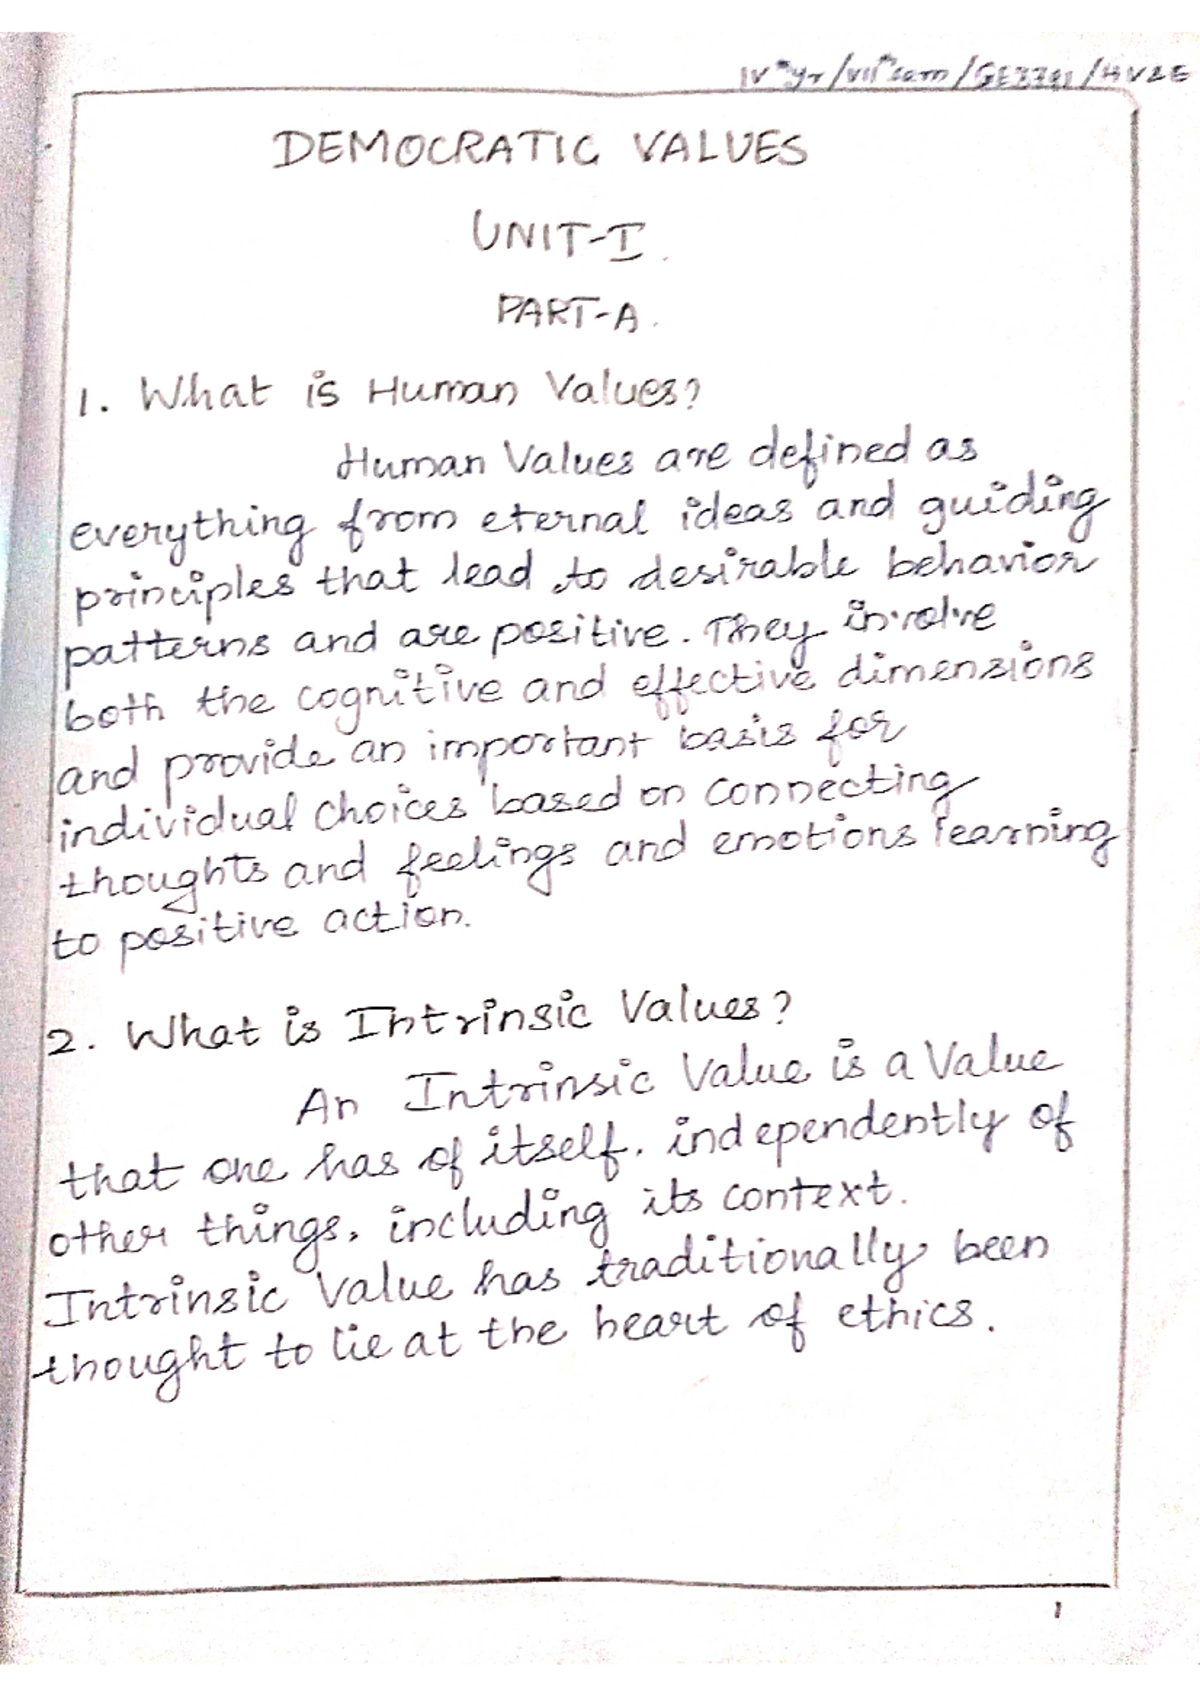 IV th yr/VII th sem/GE3791/HV&E
DEMOCRATIC VALUES
UNIT-I.
PART-A.
1. What is Human Values?
Human Values are defined as
everything from eternal ideas and guiding
principles that lead to desirable behavior
patterns and are positive. They involve
both the cognitive and effective dimensions
and provide an important basis for
individual choices based on connecting
thoughts and feelings and emotions learning
to positive action.
2. What is Intrinsic Values?
An Intrinsic Value is a Value
that one has of itself. independently of
other things, including its context.
Intrinsic Value has traditionally been
thought to lie at the heart of ethics.
1